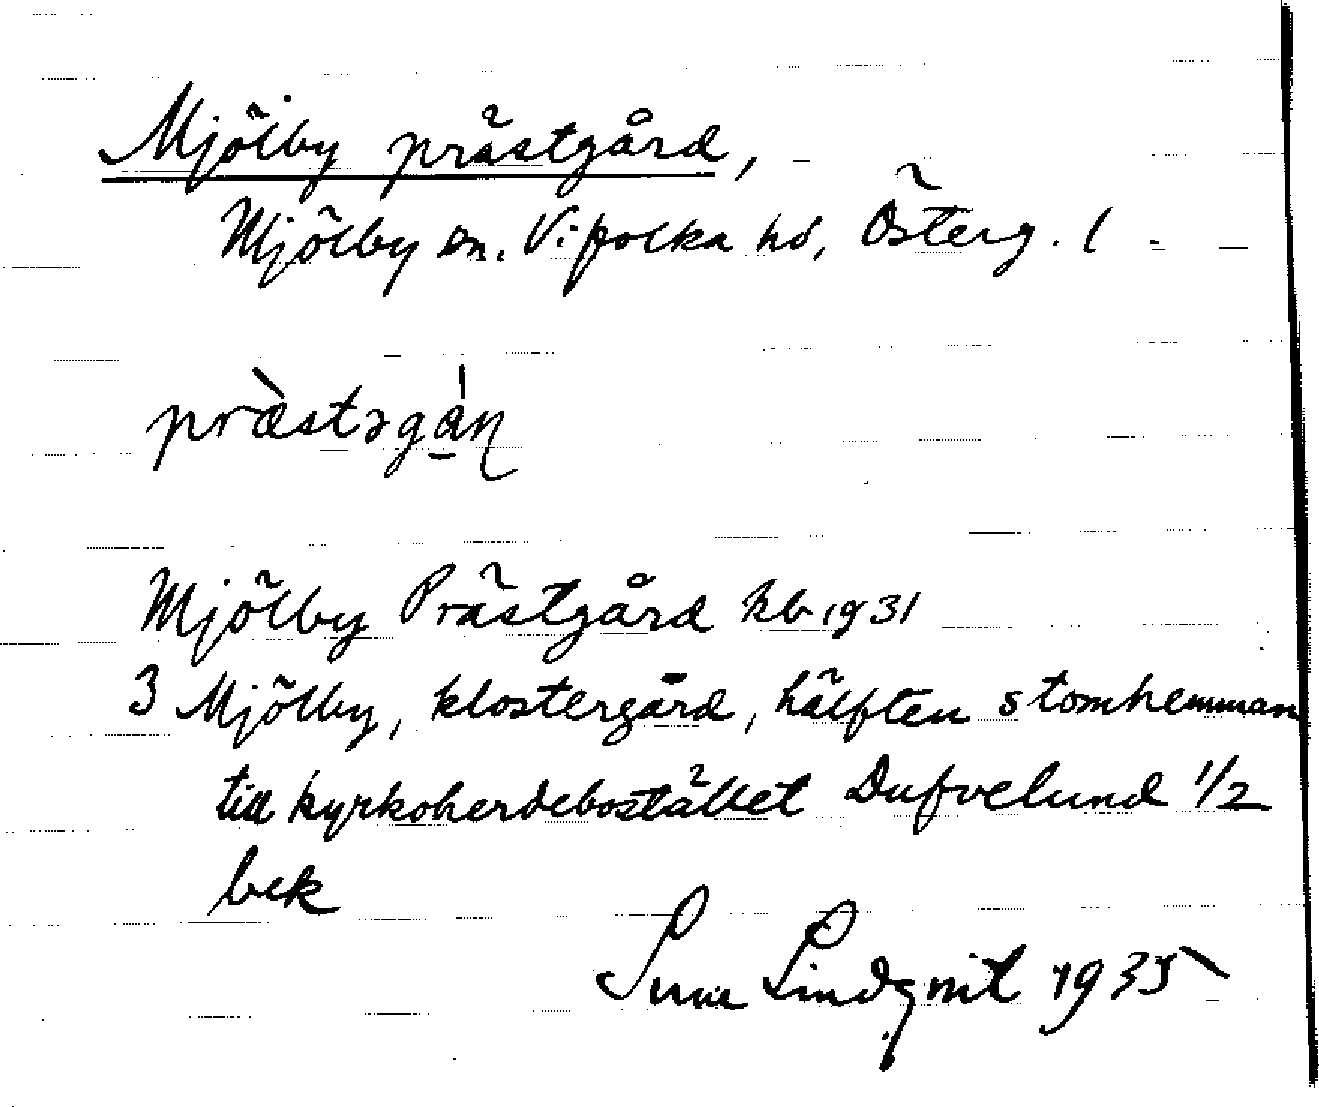 Mjölby prästgård,
Mjölby sn. Vifolka hd, Österg. l
præ̀stəgá̱ɳ
Mjölby Prästgård hb 1931
3 Mjölby, klostergård, hälften stomhemman
till kyrkoherdebostället Dufvelund 1/2
bek
Sune Lindqvist 1935